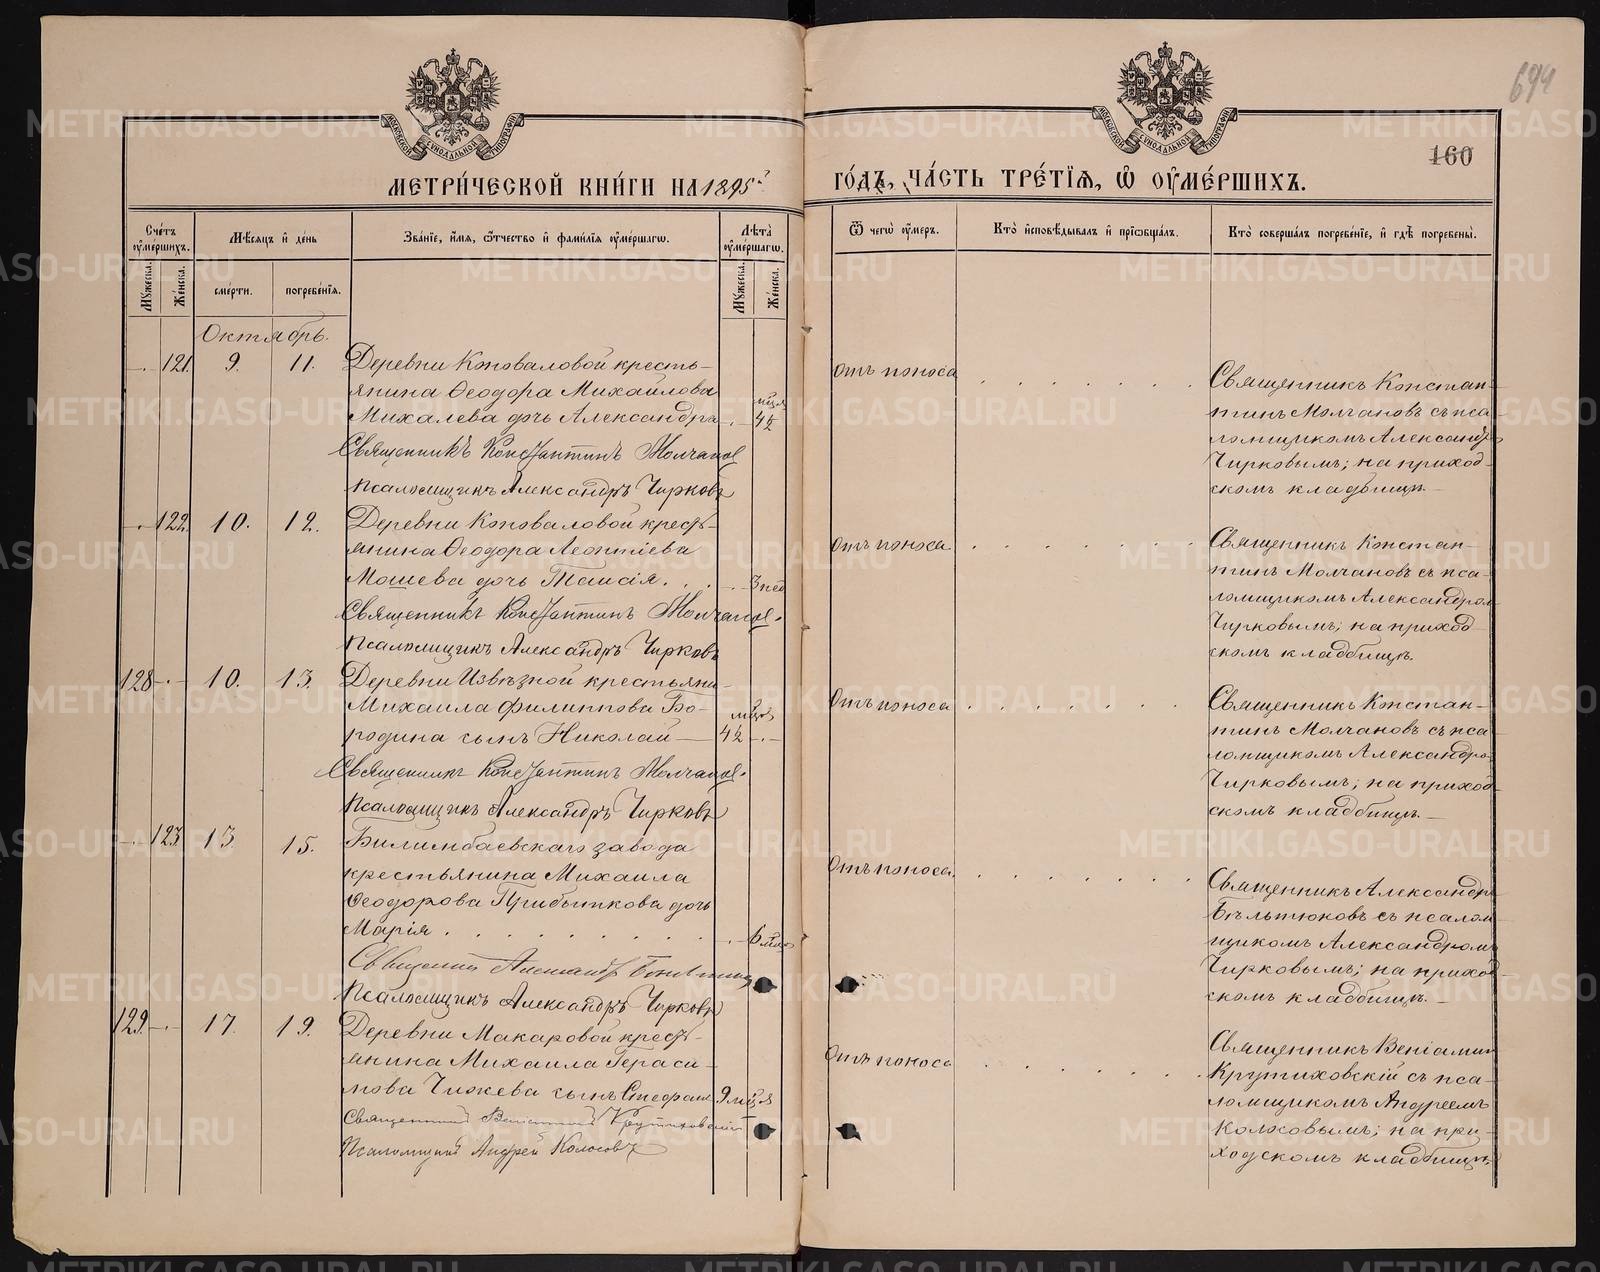 694
160
МОСКОВСКОЙ СѴНОДАЛЬНОЙ ТИПОГРАФІИ
МОСКОВСКОЙ СѴНОДАЛЬНОЙ ТИПОГРАФІИ
МЕТРИ́ЧЕСКОЙ КНИ́ГИ НА 1895й
ГО́ДЪ, ЧА́СТЬ ТРЕ́ТІЯ, Ѡ҆ ОУ҆МЕ́РШИХЪ.
Сче́тъ оу҆ме́ршихъ.
Мꙋ́жеска.
Же́нска.
Мѣ́сяцъ и҆ де́нь
сме́рти.
погребе́нія.
Зва́ніе, и҆́мя, ѻ҆́тчество и҆ фами́лія оу҆ме́ршагѡ.
Лѣ́та оу҆ме́ршагѡ.
Мꙋ́жеска.
Же́нска.
Ѿ чегѡ̀ оу҆́меръ.
Кто̀ и҆сповѣ́дывалъ и҆ прїѡбща́лъ.
Кто̀ соверша́лъ погребе́ніе, и҆ гдѣ̀ погребены̀.
Октябрь.
121. 9. 11. Деревни Коноваловой кресть-
янина Ѳеодора Михайлова
Михалева дочь Александра
4½
Священникъ Константинъ Молчановъ
Псаломщикъ Александръ Чирковъ
отъ поноса
Священникъ Констан-
тинъ Молчановъ съ пса-
ломщикомъ Александр
Чирковымъ; на приход-
скомъ кладбищѣ.
122. 10. 12. Деревни Коноваловой кресть-
янина Ѳеодора Леонтіева
Мошева дочь Таисія.
3 нед
Священникъ Константинъ Молчановъ.
Псаломщикъ Александръ Чирковъ
Отъ поноса
Священникъ Констан-
тинъ Молчановъ съ пса-
ломщикомъ Александром
Чирковымъ; на приход-
скомъ кладбищѣ.
128 10. 13. Деревни Извѣзной крестьяни-
Михаила Филиппова Бо-
родина сынъ Николай
Священникъ Константинъ Молчановъ.
Псаломщикъ Александръ Чирковъ
Отъ поноса
Священникъ Констан-
тинъ Молчановъ съ пса-
ломщикомъ Александро
Чирковымъ; на приход-
скомъ кладбищѣ.
123. 13. 15. Билимбаевскаго завода
крестьянина Михаила
Ѳеодорова Прибыткова дочь
Марія
6 мцов
Псаломщикъ Александръ Чирковъ
Отъ поноса.
Священникъ Александръ
Бѣльтюковъ съ псалом-
щикомъ Александромъ
Чирковымъ; на приход-
скомъ кладбищѣ.
129. 17. 19. Деревни Макаровой кресть-
янина Михаила Гераси-
мова Чижева сынъ Стефанъ
9 м
Священникъ Веніаминъ Крутиховскій
Псаломщикъ Андрей Колосовъ
Отъ поноса
Священникъ Веніамин
Крутиховскій съ пса-
ломщикомъ Андреемъ
Колосовымъ; на при-
ходскомъ кладбищѣ
METRIKI.GASO-URAL.RU